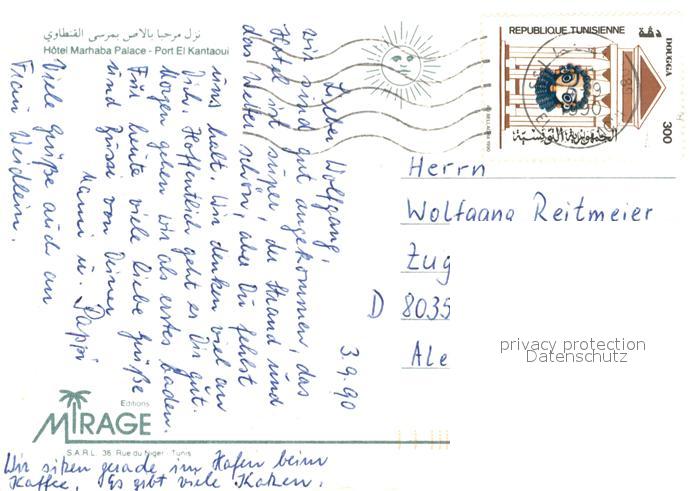 نزل مرحبا بالاص بمرسى القنطاوي
Hôtel Marhaba Palace - Port El Kantaoui
REPUBLIQUE TUNISIENNE
DOUGGA
300
الجمهورية التونسية
3.9.90
Lieber Wolfgang,
wir sind gut angekommen, das
Hotel ist super, der Strand und
das Wetter schön, aber Du fehlst
uns halt. Wir denken viel an
Dich. Hoffentlich geht es Dir gut.
Morgen gehen wir als erstes baden.
Für heute viele liebe Grüße
und Bussi von Deiner
Mami u. Pappi
Viele Grüße auch an
Frau Weidlein.
Herrn
Wolfgang Reitmeier
Zug
D 8035
Ale
privacy protection
Datenschutz
Editions
MIRAGE
S.A.R.L. 36, Rue du Niger - Tunis
Wir sitzen gerade im Hafen beim
Kaffee. Es gibt viele Katzen.